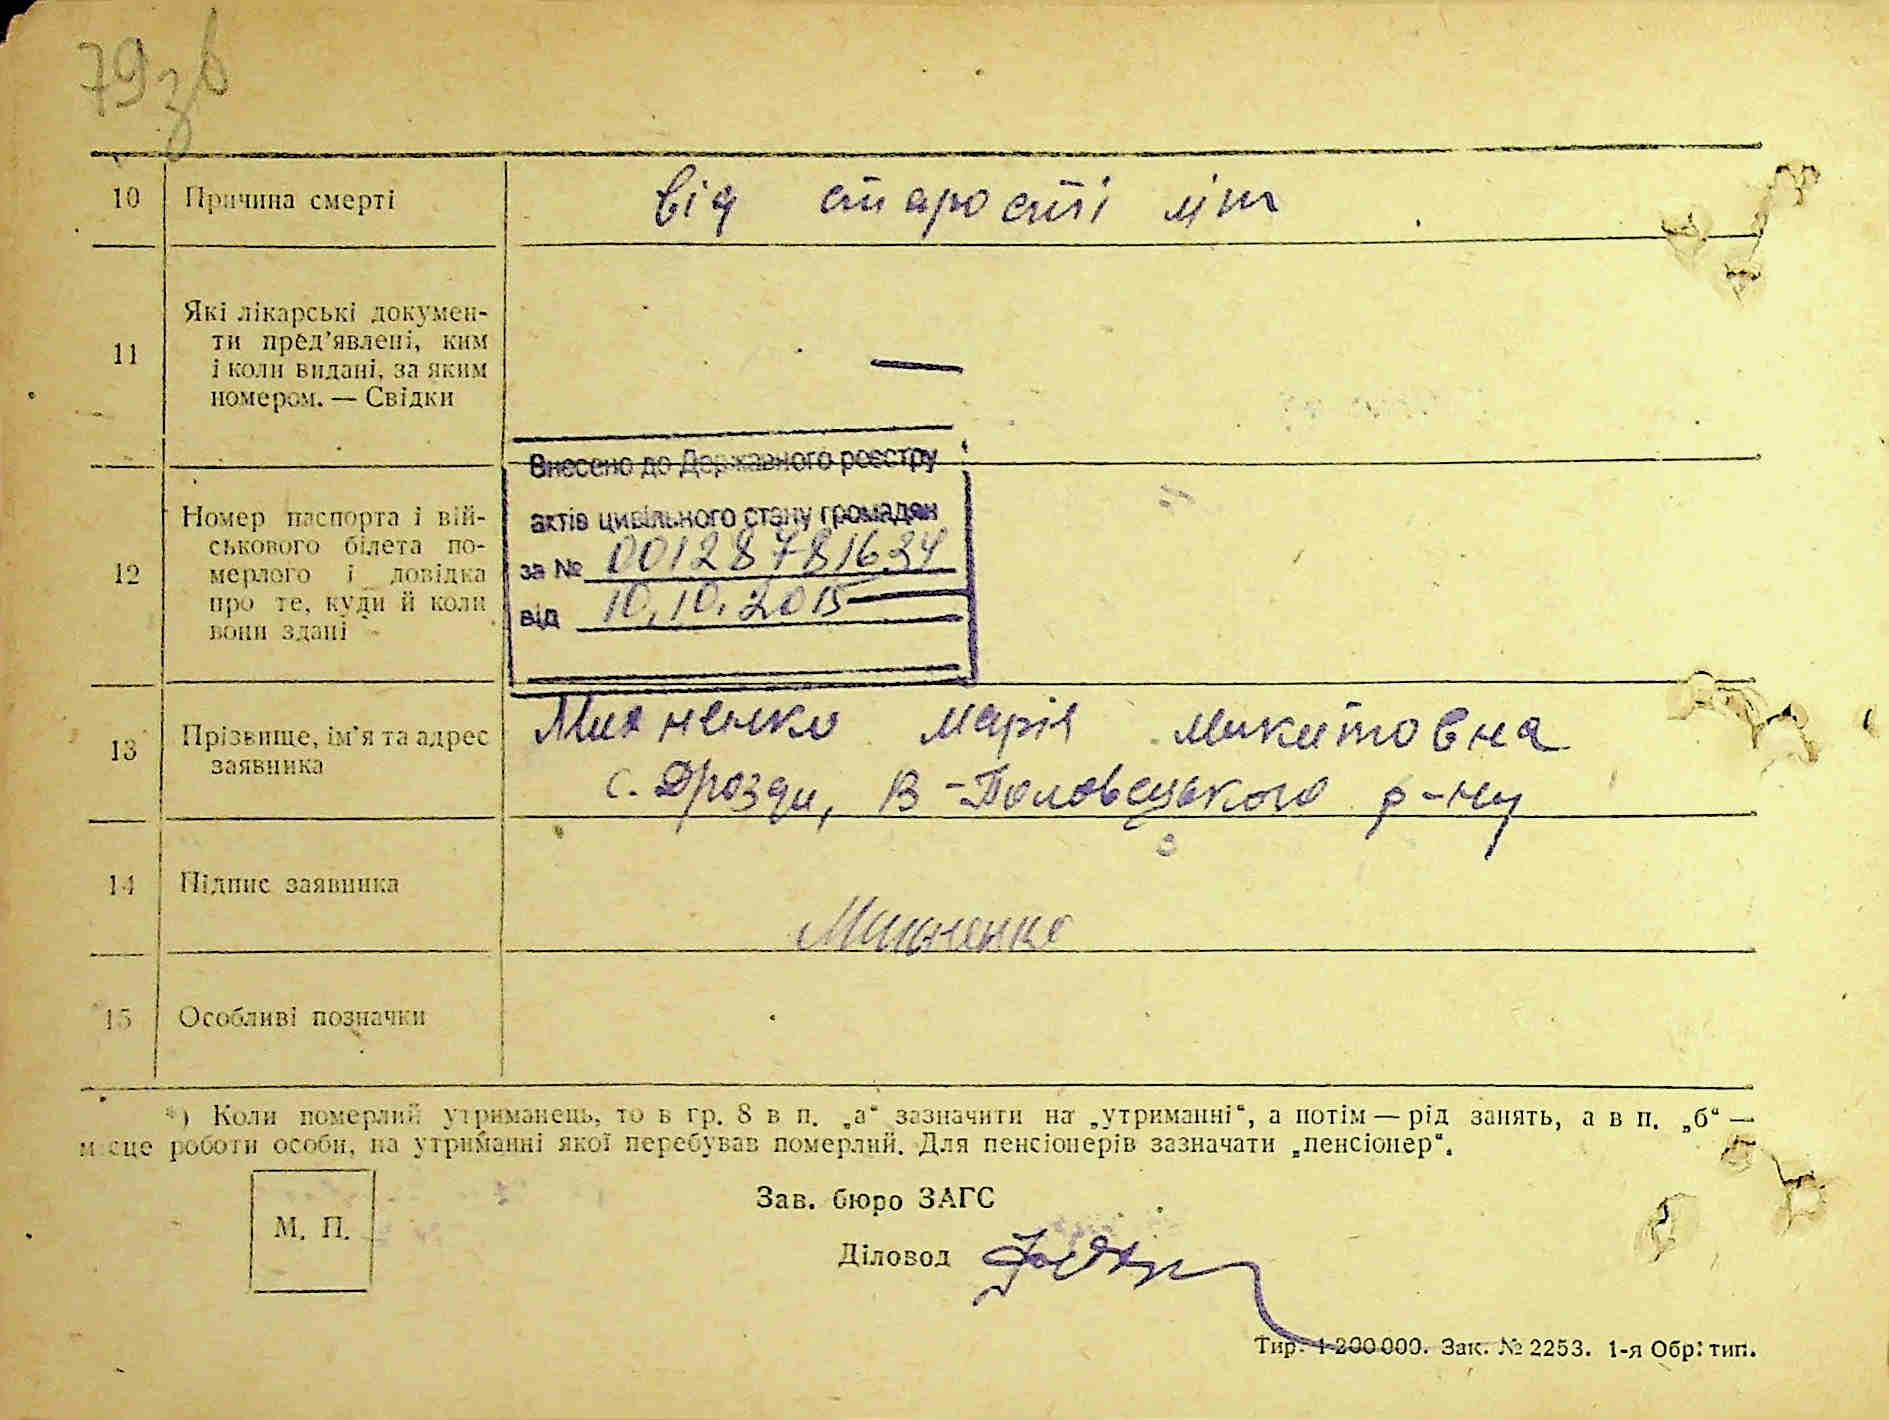 79зв
10 Причина смерті від старості літ
11 Які лікарські докумен-
ти пред’явлені, ким
і коли видані, за яким
номером. — Свідки —
Внесено до Державного реєстру
актів цивільного стану громадян
за № 00128781634
від 10.10.2015
12 Номер паспорта і вій-
ськового білета по-
мерлого і довідка
про те, куди й коли
вони здані
13 Прізвище, ім’я та адрес
заявника
Марія Микитовна
с. Дрозди, В-Половецького р-ну
14 Підпис заявника
15 Особливі позначки
*) Коли померлий утриманець, то в гр. 8 в п. „а“ зазначити на „утриманні“, а потім — рід занять, а в п. „б“ —
місце роботи особи, на утриманні якої перебував померлий. Для пенсіонерів зазначати „пенсіонер“.
М. П.
Зав. бюро ЗАГС
Діловод
Тир. 1-200 000. Зак. № 2253. 1-я Обр. тип.